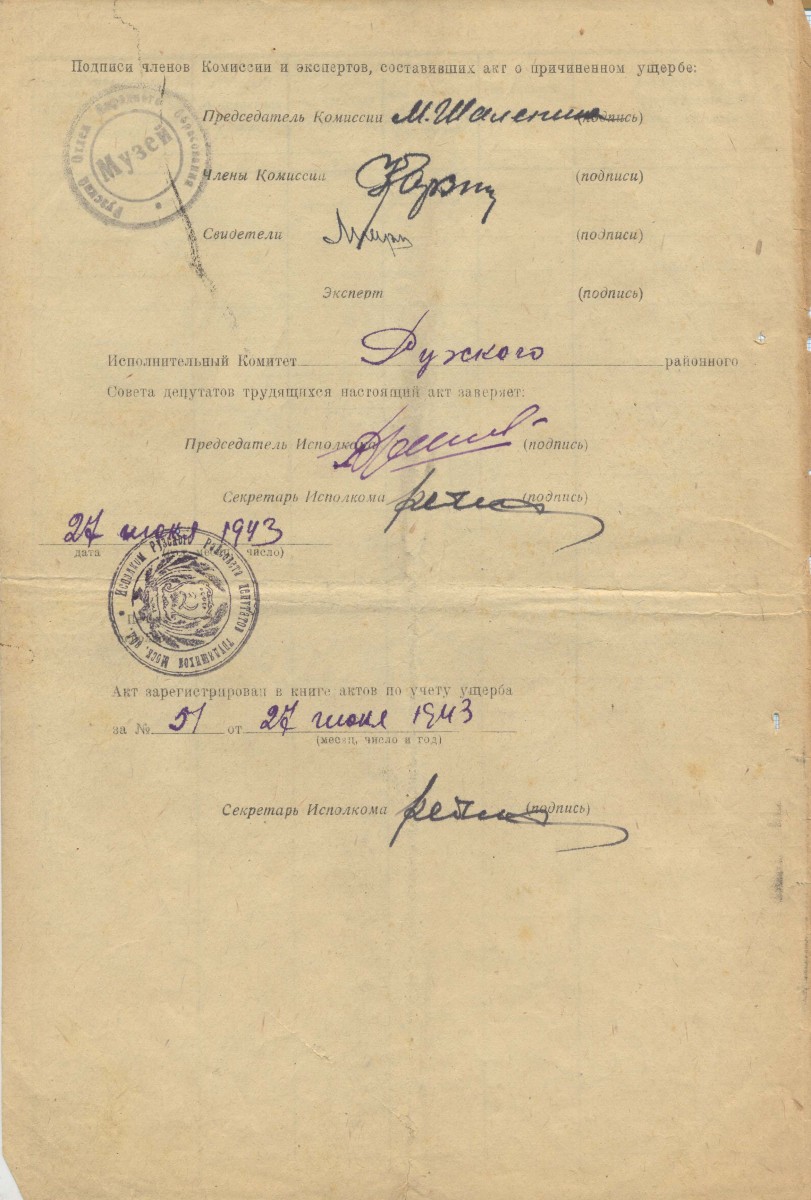 Подписи членов Комиссии и экспертов, составивших акт о причиненном ущербе:
Рузский Отдел Народного Образования
Музей
Председатель Комиссии М. Шаленин (подпись)
Члены Комиссии (подписи)
Свидетели (подписи)
Эксперт (подпись)
Исполнительный Комитет Рузского районного
Совета депутатов трудящихся настоящий акт заверяет:
Председатель Исполкома (подпись)
Секретарь Исполкома (подпись)
27 июля 1943
дата число)
Исполком Рузского Райсовета депутатов трудящихся Моск. обл.
Акт зарегистрирован в книге актов по учету ущерба
за № 51 от 27 июля 1943
(месяц, число и год)
Секретарь Исполкома (подпись)